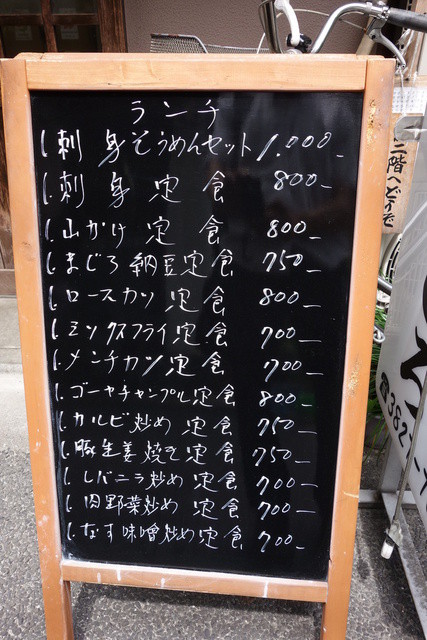 ランチ
1. 刺身そうめんセット 1.000-
1. 刺身定食 800-
1. 山かけ定食 800-
1. まぐろ納豆定食 750-
1. ロースカツ定食 800-
1. ミックスフライ定食 700-
1. メンチカツ定食 700-
1. ゴーヤチャンプル定食 800-
1. カルビ炒め定食 750-
1. 豚生姜焼き定食 750-
1. レバニラ炒め定食 700-
1. 肉野菜炒め定食 700-
1. なす味噌炒め定食 700-
二階へどうぞ